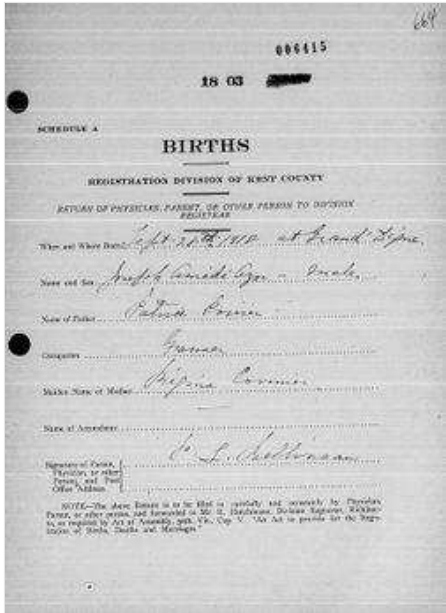 664
006415
18 03
SCHEDULE A
BIRTHS
REGISTRATION DIVISION OF KENT COUNTY
RETURN OF PHYSICIAN, PARENT, OR OTHER PERSON TO DIVISION
REGISTRAR
When and Where Born Sept 28th 1910 at Grand Digue
Name and Sex Joseph - male
Name of Father Poirier
Occupation Farmer
Maiden Name of Mother Régina Cormier
Name of Attendant
Signature of Parent,
Physician, or other
Person, and Post
Office Address
NOTE—The above Return is to be filled in carefully and correctly by Physician,
Parent, or other person, and forwarded to Mr. Hutchinson, Division Registrar,
as required by Act of Assembly, Vic., Cap V. "An Act to provide for the Regis-
tration of Births, Deaths and Marriages."